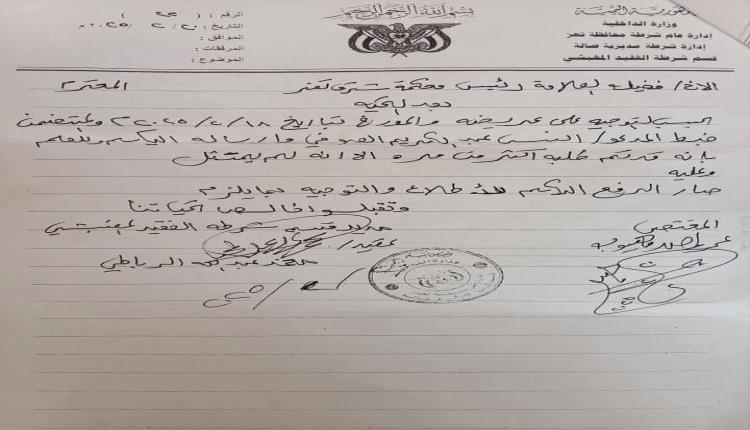 بسم الله الرحمن الرحيم
الجمهورية اليمنية
وزارة الداخلية
إدارة عام شرطة محافظة تعز
إدارة شرطة مديرية صالة
قسم شرطة الفقيد المغبشي
الرقم : ( )
التاريخ : ٢٠ / ٢ / ٢٠٢٥ م
الموافق :
المرفقات :
الموضوع :
الاخ / فضيلة العلامة رئيس محكمة شرق تعز المحترم
بعد التحية
حسب التوجيه على عريضة والمؤرخ بتاريخ ١٨ / ٢ / ٢٠٢٥ والمتضمن
ضبط المدعو / عبدالكريم الصوفي وارساله اليكم ونفيدكم
بانه قد تم طلبه اكثر من مره الا انه لم يمتثل
وعليه
صار الرفع اليكم للاطلاع والتوجيه بما يلزم
وتقبلوا خالص تحياتنا
المختص
مدير قسم شرطة الفقيد المغبشي
عقيد /
محمد عبده الرباطي